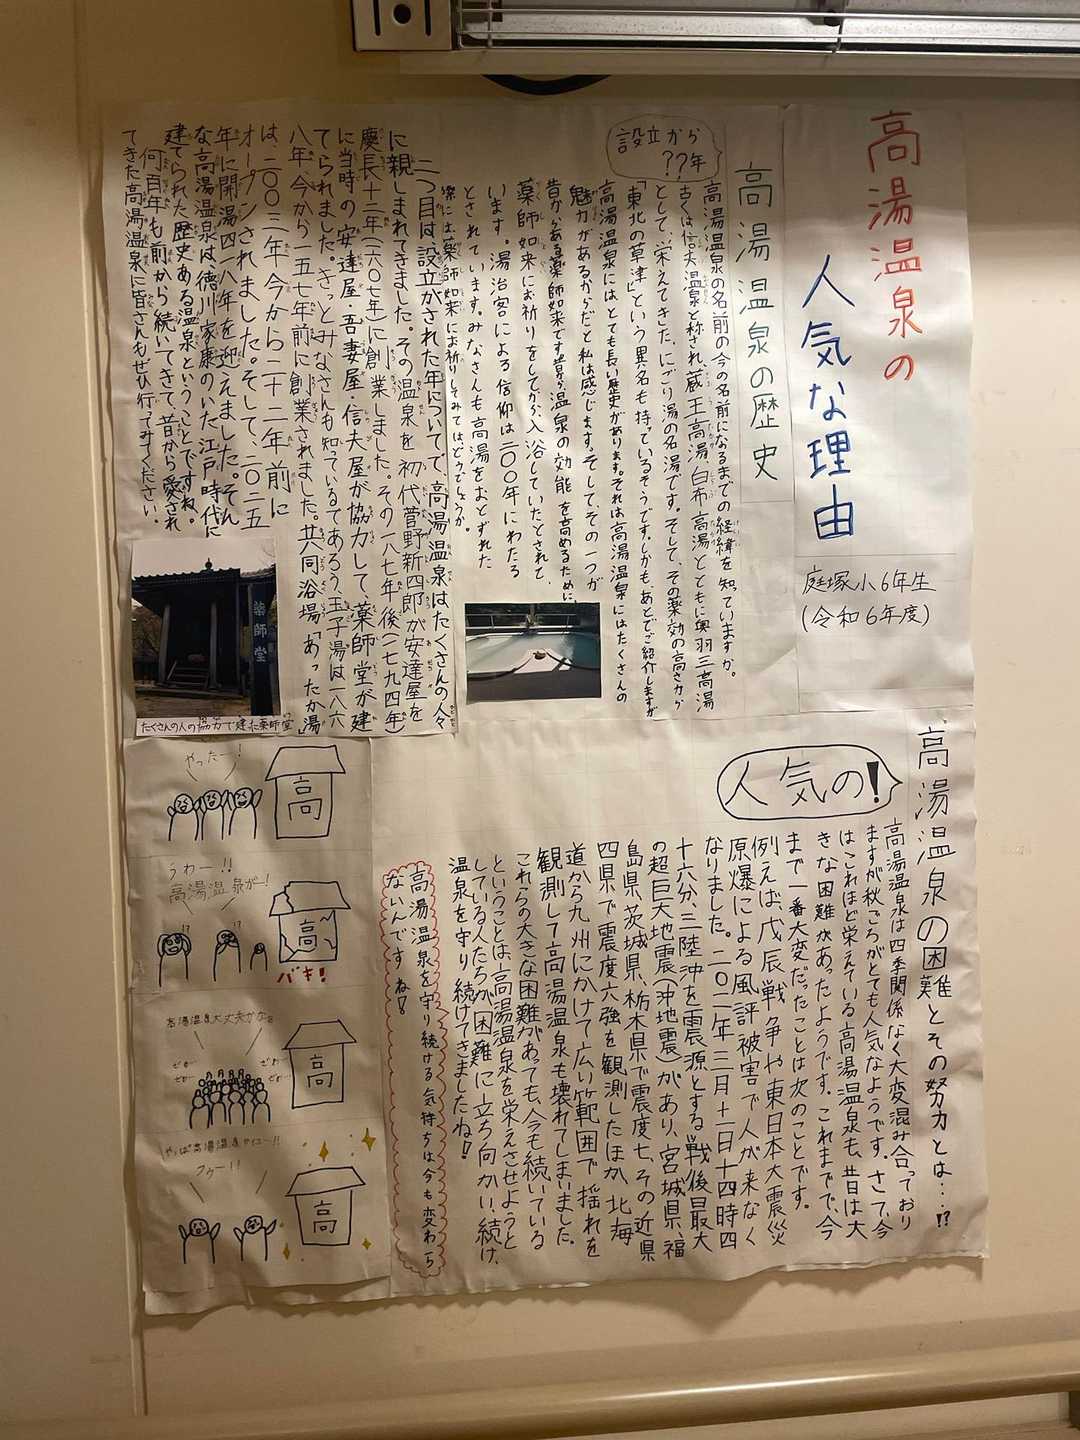 高湯温泉の
人気な理由
庭塚小6年生
(令和6年度)
高湯温泉の歴史
設立から
??年
高湯温泉の名前の今の名前になるまでの経緯を知っていますか。
古くは信夫温泉と称され、蔵王高湯、白布高湯とともに奥羽三高湯
として、栄えてきた、にごり湯の名湯です。そして、その薬効の高さから
「東北の草津」という異名も持っているそうです。しかも、あとでご紹介しますが
高湯温泉にはとても長い歴史があります。それは高湯温泉にはたくさんの
魅力があるからだと私は感じます。そして、その一つが
昔からある薬師如来です。昔から温泉の効能を高めるために、
薬師如来にお祈りをしてから入浴していたとされて、
います。湯治客による信仰は二〇〇年にわたる
とされています。みなさんも高湯をおとずれた
際には薬師如来にお祈りしてみてはどうでしょうか。
二つ目は設立がされた年についてで、高湯温泉は、たくさんの人々
に親しまれてきました。その温泉を初代菅野新四郎が安達屋を
慶長十二年(一六〇七年)に創業しました。その一八七年後(一七九四年)
に当時の安達屋・吾妻屋・信夫屋が協力して、薬師堂が建
てられました。きっとみなさんも知っているであろう、玉子湯は一八六
八年、今から一五七年前に創業されました。共同浴場「あったか湯」
は、二〇〇三年、今から二十二年前に
オープンされました。そして、二〇二五
年に開湯四一八年を迎えました。そん
な高湯温泉は徳川家康のいた江戸時代に
建てられた歴史ある温泉ということですね。
何百年も前から続いてきて、昔から愛され
てきた高湯温泉に皆さんもぜひ行ってみてください。
薬師堂
たくさんの人の協力で建った薬師堂
高湯温泉の困難とその努力とは…!?
人気の!
高湯温泉は四季関係なく大変混み合っており
ますが秋ごろがとても人気なようです。さて、今
はこれほど栄えている高湯温泉も、昔は大
きな困難があったようです。これまでで、今
まで一番大変だったことは次のことです。
例えば、戊辰戦争や東日本大震災
原爆による風評被害で人が来なく
なりました。二〇一一年三月十一日十四時四
十六分、三陸沖を震源とする戦後最大
の超巨大地震(沖地震)があり、宮城県、福
島県、茨城県、栃木県で震度七、その近県
四県で震度六強を観測したほか、北海
道から九州にかけて広い範囲で揺れを
観測して高湯温泉も壊れてしまいました。
これらの大きな困難があっても、今も続いている
ということは、高湯温泉を栄えさせようと
している人たちが困難に立ち向かい、続け、
温泉を守り続けてきましたね!
高湯温泉を守り続ける気持ちは今も変わら
ないんですね!
やったー!
高
うわー!!
高湯温泉がー!
!?
!?
高
バキ!
高湯温泉大丈夫かな。
ざわ
ざわ
ざわ
ざわ
高
やっぱ高湯温泉サイコー!!
フゥー!!
高